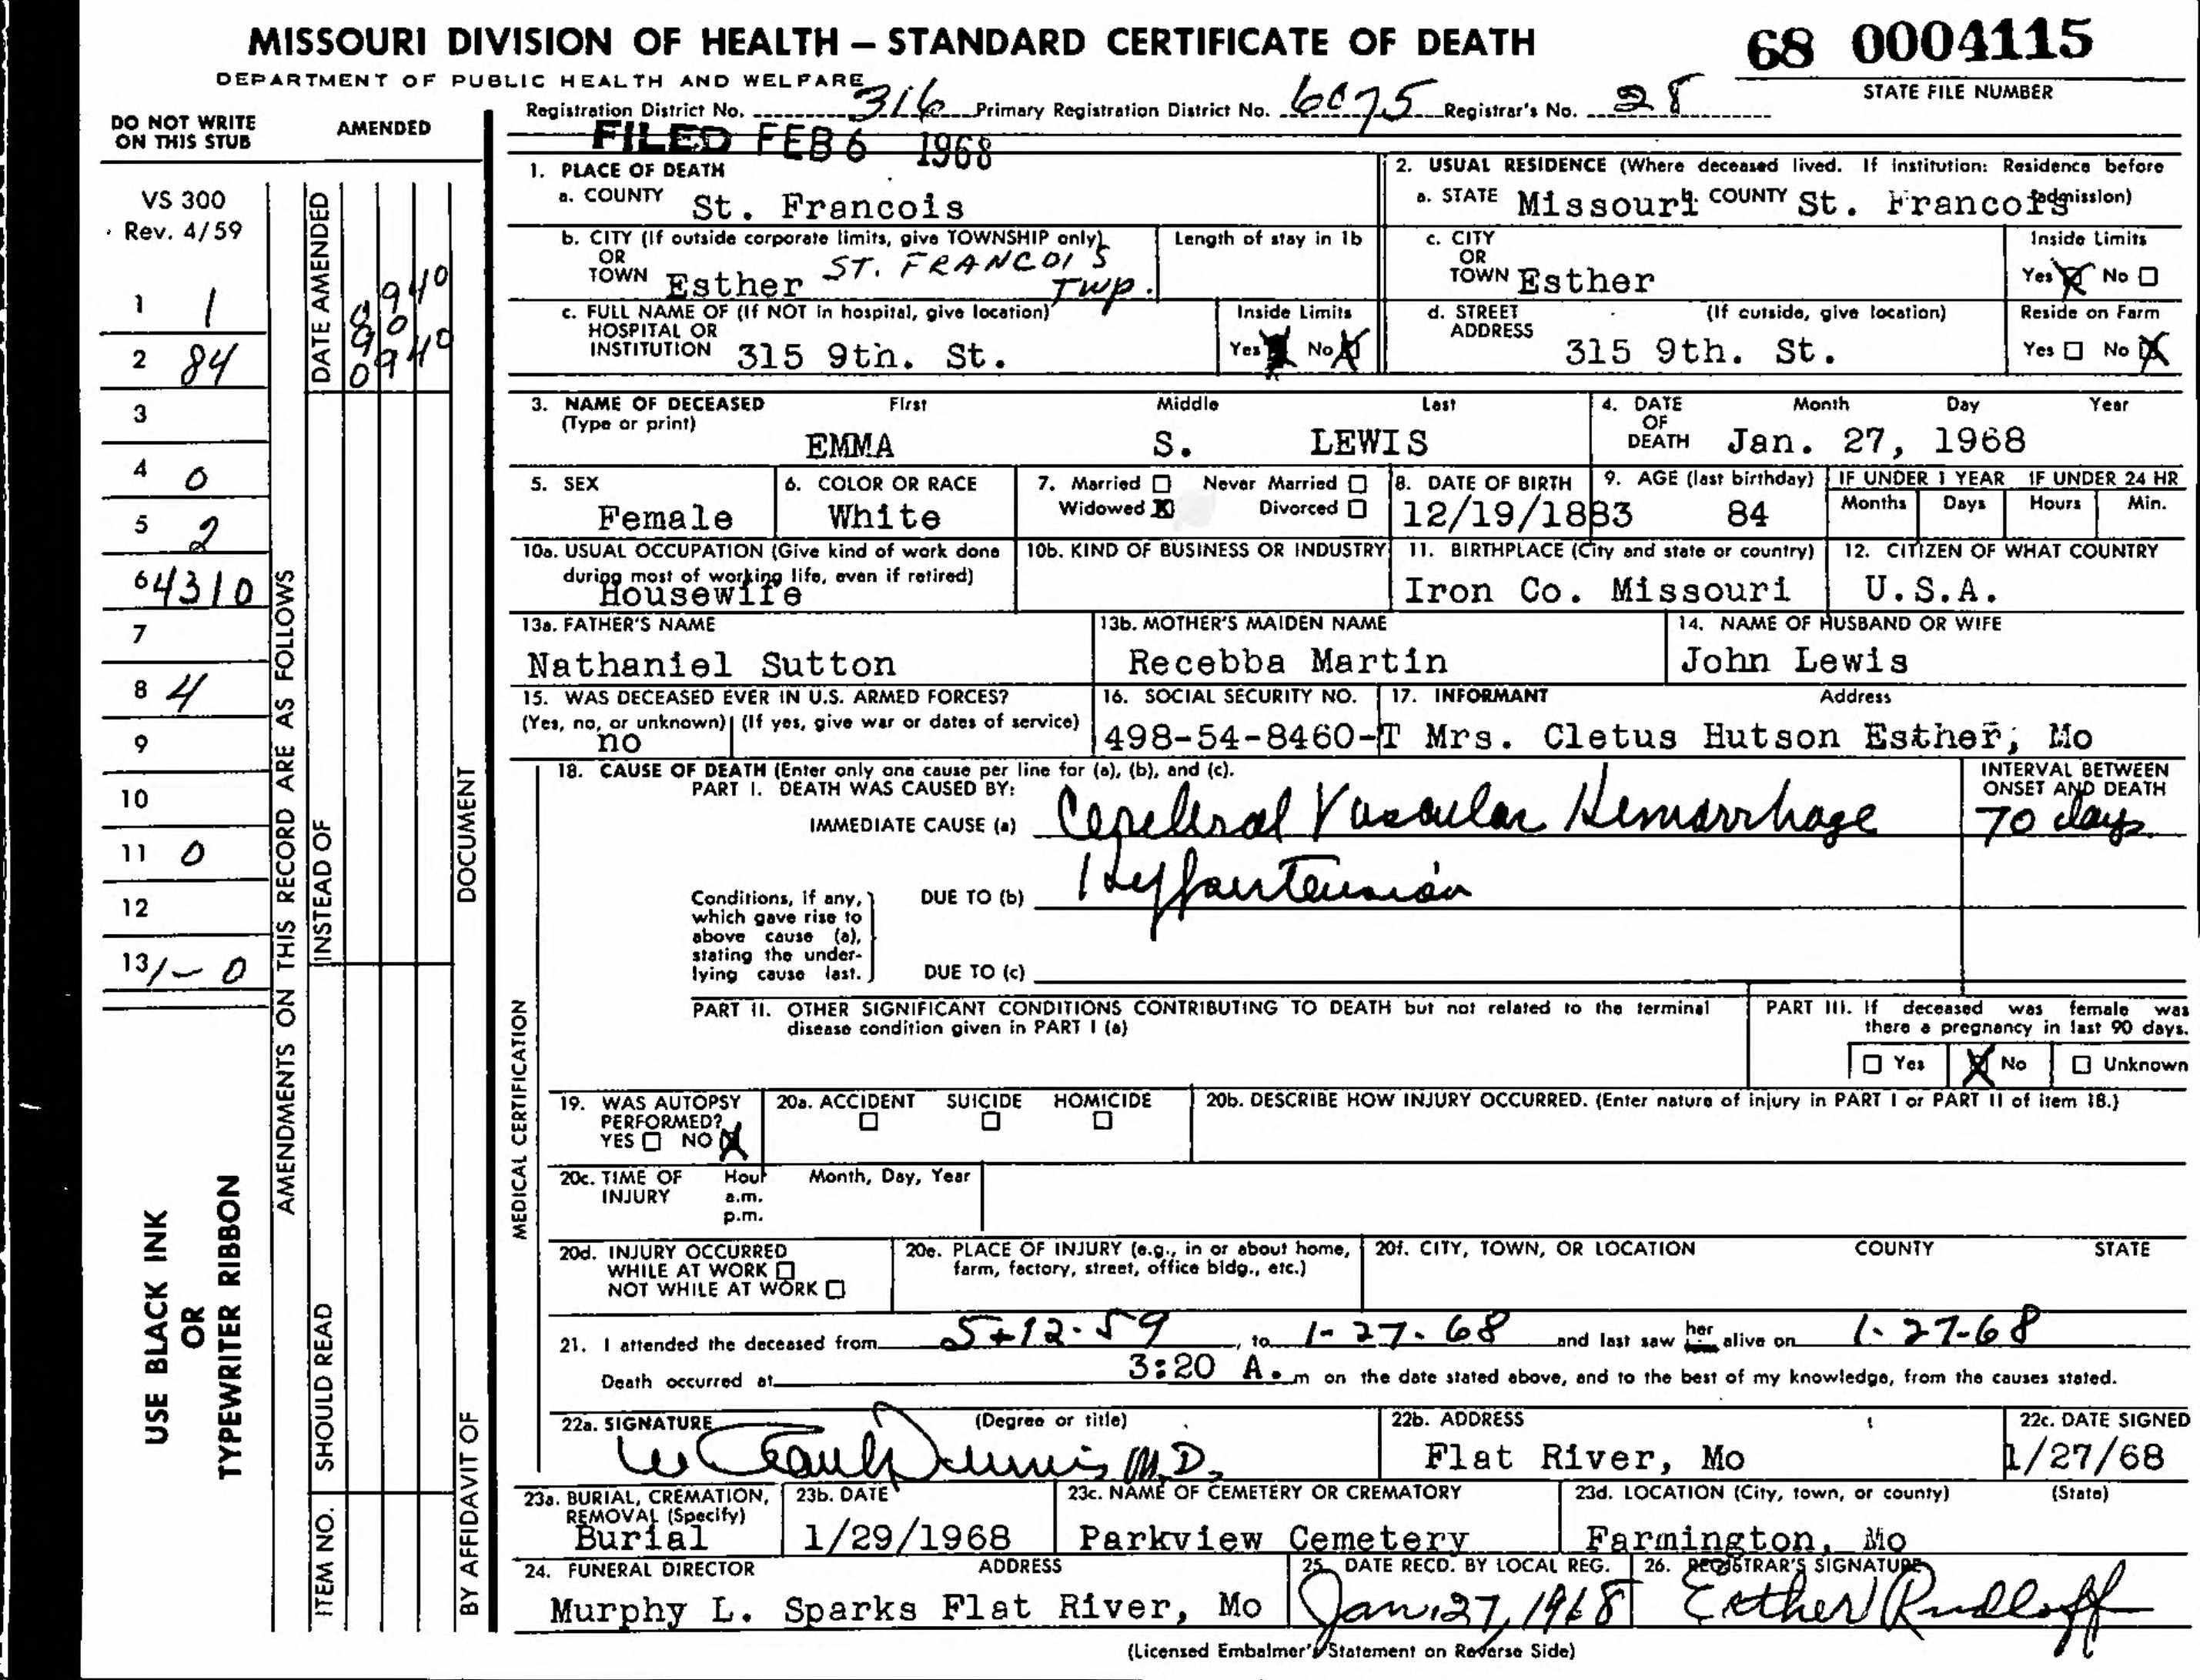 MISSOURI DIVISION OF HEALTH — STANDARD CERTIFICATE OF DEATH
68 0004115
DEPARTMENT OF PUBLIC HEALTH AND WELFARE
STATE FILE NUMBER
Registration District No. 316 Primary Registration District No. 6075 Registrar's No. 28
FILED FEB 6 1968
DO NOT WRITE ON THIS STUB
AMENDED
VS 300
Rev. 4/59
1 1
2 84
3
4 0
5 2
6 4310
7
8 4
9
10
11 0
12
13 1-0
USE BLACK INK
OR
TYPEWRITER RIBBON
AMENDMENTS ON THIS RECORD ARE AS FOLLOWS
DATE AMENDED
INSTEAD OF
SHOULD READ
ITEM NO.
DOCUMENT
BY AFFIDAVIT OF
1. PLACE OF DEATH
a. COUNTY St. Francois
b. CITY (If outside corporate limits, give TOWNSHIP only)
OR
TOWN Esther ST. FRANCOIS TWP.
Length of stay in 1b
c. FULL NAME OF (If NOT in hospital, give location)
HOSPITAL OR
INSTITUTION 315 9th. St.
Inside Limits
Yes No
2. USUAL RESIDENCE (Where deceased lived. If institution: Residence before admission)
a. STATE Missouri COUNTY St. Francois
c. CITY
OR
TOWN Esther
Inside Limits
Yes No
d. STREET (If outside, give location)
ADDRESS 315 9th. St.
Reside on Farm
Yes No
3. NAME OF DECEASED First Middle Last
(Type or print)
EMMA S. LEWIS
4. DATE Month Day Year
OF
DEATH Jan. 27, 1968
5. SEX
Female
6. COLOR OR RACE
White
7. Married Never Married
Widowed X Divorced
8. DATE OF BIRTH
12/19/1883
9. AGE (last birthday)
84
IF UNDER 1 YEAR IF UNDER 24 HR
Months Days Hours Min.
10a. USUAL OCCUPATION (Give kind of work done
during most of working life, even if retired)
Housewife
10b. KIND OF BUSINESS OR INDUSTRY
11. BIRTHPLACE (City and state or country)
Iron Co. Missouri
12. CITIZEN OF WHAT COUNTRY
U.S.A.
13a. FATHER'S NAME
Nathaniel Sutton
13b. MOTHER'S MAIDEN NAME
Recebba Martin
14. NAME OF HUSBAND OR WIFE
John Lewis
15. WAS DECEASED EVER IN U.S. ARMED FORCES?
(Yes, no, or unknown) (If yes, give war or dates of service)
no
16. SOCIAL SECURITY NO.
498-54-8460-T
17. INFORMANT Address
Mrs. Cletus Hutson Esther, Mo
MEDICAL CERTIFICATION
18. CAUSE OF DEATH (Enter only one cause per line for (a), (b), and (c).
PART I. DEATH WAS CAUSED BY:
IMMEDIATE CAUSE (a) Cerebral Vascular Hemorrhage
INTERVAL BETWEEN
ONSET AND DEATH
70 days
Conditions, if any,
which gave rise to
above cause (a),
stating the under-
lying cause last.
DUE TO (b) Hypertension
DUE TO (c)
PART II. OTHER SIGNIFICANT CONDITIONS CONTRIBUTING TO DEATH but not related to the terminal
disease condition given in PART I (a)
PART III. If deceased was female was
there a pregnancy in last 90 days.
Yes No Unknown
19. WAS AUTOPSY
PERFORMED?
YES NO
20a. ACCIDENT SUICIDE HOMICIDE
20b. DESCRIBE HOW INJURY OCCURRED. (Enter nature of injury in PART I or PART II of item 18.)
20c. TIME OF INJURY
Hour Month, Day, Year
a.m.
p.m.
20d. INJURY OCCURRED
WHILE AT WORK
NOT WHILE AT WORK
20e. PLACE OF INJURY (e.g., in or about home,
farm, factory, street, office bldg., etc.)
20f. CITY, TOWN, OR LOCATION COUNTY STATE
21. I attended the deceased from 5-12-59, to 1-27-68 and last saw her alive on 1-27-68
Death occurred at 3:20 A.m on the date stated above, and to the best of my knowledge, from the causes stated.
22a. SIGNATURE (Degree or title)
M.D.
22b. ADDRESS
Flat River, Mo
22c. DATE SIGNED
1/27/68
23a. BURIAL, CREMATION,
REMOVAL (Specify)
Burial
23b. DATE
1/29/1968
23c. NAME OF CEMETERY OR CREMATORY
Parkview Cemetery
23d. LOCATION (City, town, or county) (State)
Farmington, Mo
24. FUNERAL DIRECTOR ADDRESS
Murphy L. Sparks Flat River, Mo
25. DATE RECD. BY LOCAL REG.
Jan. 27, 1968
26. REGISTRAR'S SIGNATURE
Esther Rudloff
(Licensed Embalmer's Statement on Reverse Side)